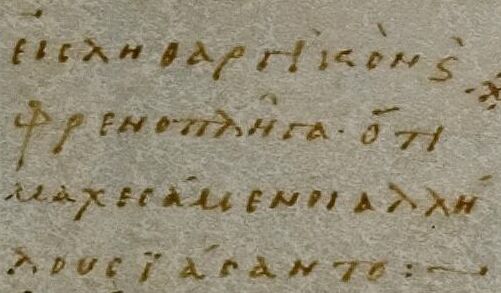 εἰς ληθαργικὸν ϗ
φρενοπλῆγα· ὅτι
μαχεσάμενοι ἀλλή
λους ϊάσαντο: